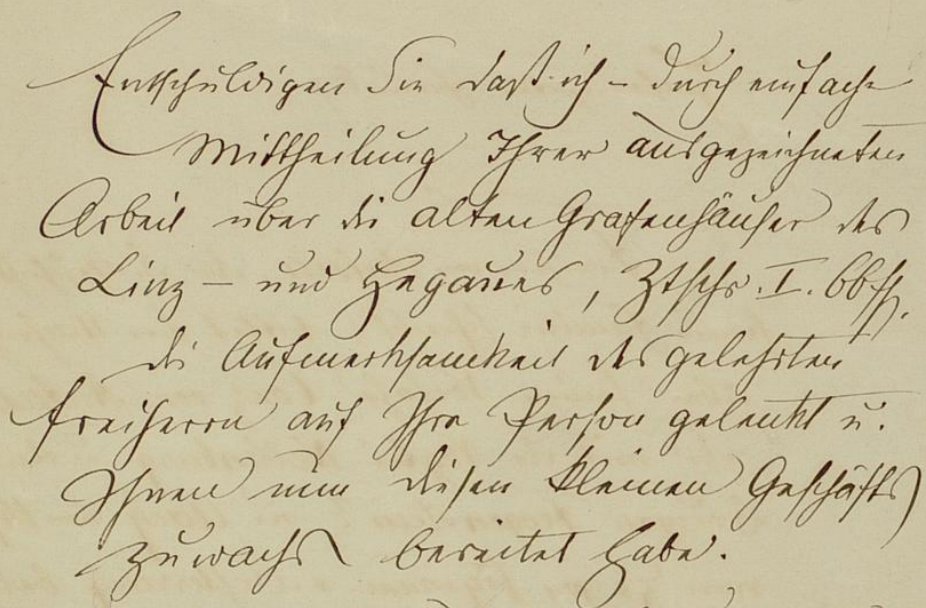 Entschuldigen Sie daß ich – durch einfache
Mittheilung Ihrer ausgezeichneten
Arbeit über die alten Grafenhäuser des
Linz – und Hegaues, Ztschr. I. 66 ff.
die Aufmerksamkeit des gelehrten
Freiherrn auf Ihre Person gelenkt u.
Ihnen nun diesen kleinen Geschäfts
zuwachs bereitet habe.